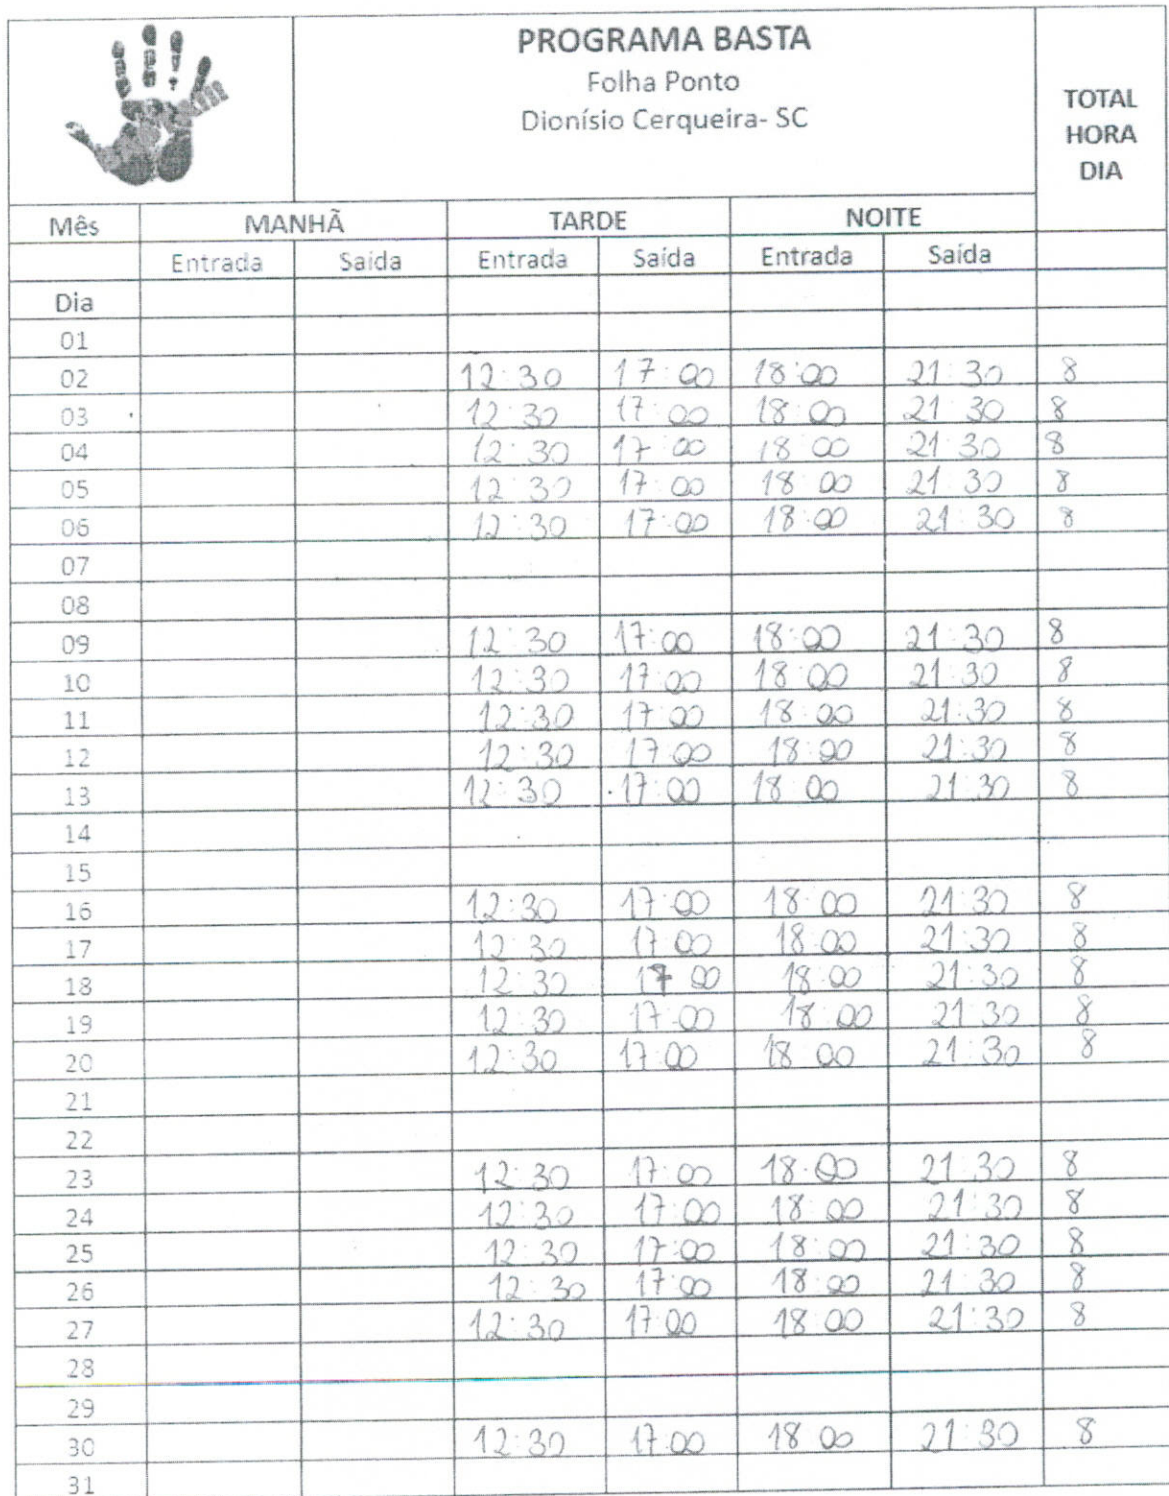 PROGRAMA BASTA
Folha Ponto
Dionísio Cerqueira- SC
TOTAL
HORA
DIA
Mês MANHÃ TARDE NOITE
Entrada Saída Entrada Saída Entrada Saída
Dia
01
02 12:30 17:00 18:00 21:30 8
03 12:30 17:00 18:00 21:30 8
04 12:30 17:00 18:00 21:30 8
05 12:30 17:00 18:00 21:30 8
06 12:30 17:00 18:00 21:30 8
07
08
09 12:30 17:00 18:00 21:30 8
10 12:30 17:00 18:00 21:30 8
11 12:30 17:00 18:00 21:30 8
12 12:30 17:00 18:00 21:30 8
13 12:30 17:00 18:00 21:30 8
14
15
16 12:30 17:00 18:00 21:30 8
17 12:30 17:00 18:00 21:30 8
18 12:30 17:00 18:00 21:30 8
19 12:30 17:00 18:00 21:30 8
20 12:30 17:00 18:00 21:30 8
21
22
23 12:30 17:00 18:00 21:30 8
24 12:30 17:00 18:00 21:30 8
25 12:30 17:00 18:00 21:30 8
26 12:30 17:00 18:00 21:30 8
27 12:30 17:00 18:00 21:30 8
28
29
30 12:30 17:00 18:00 21:30 8
31